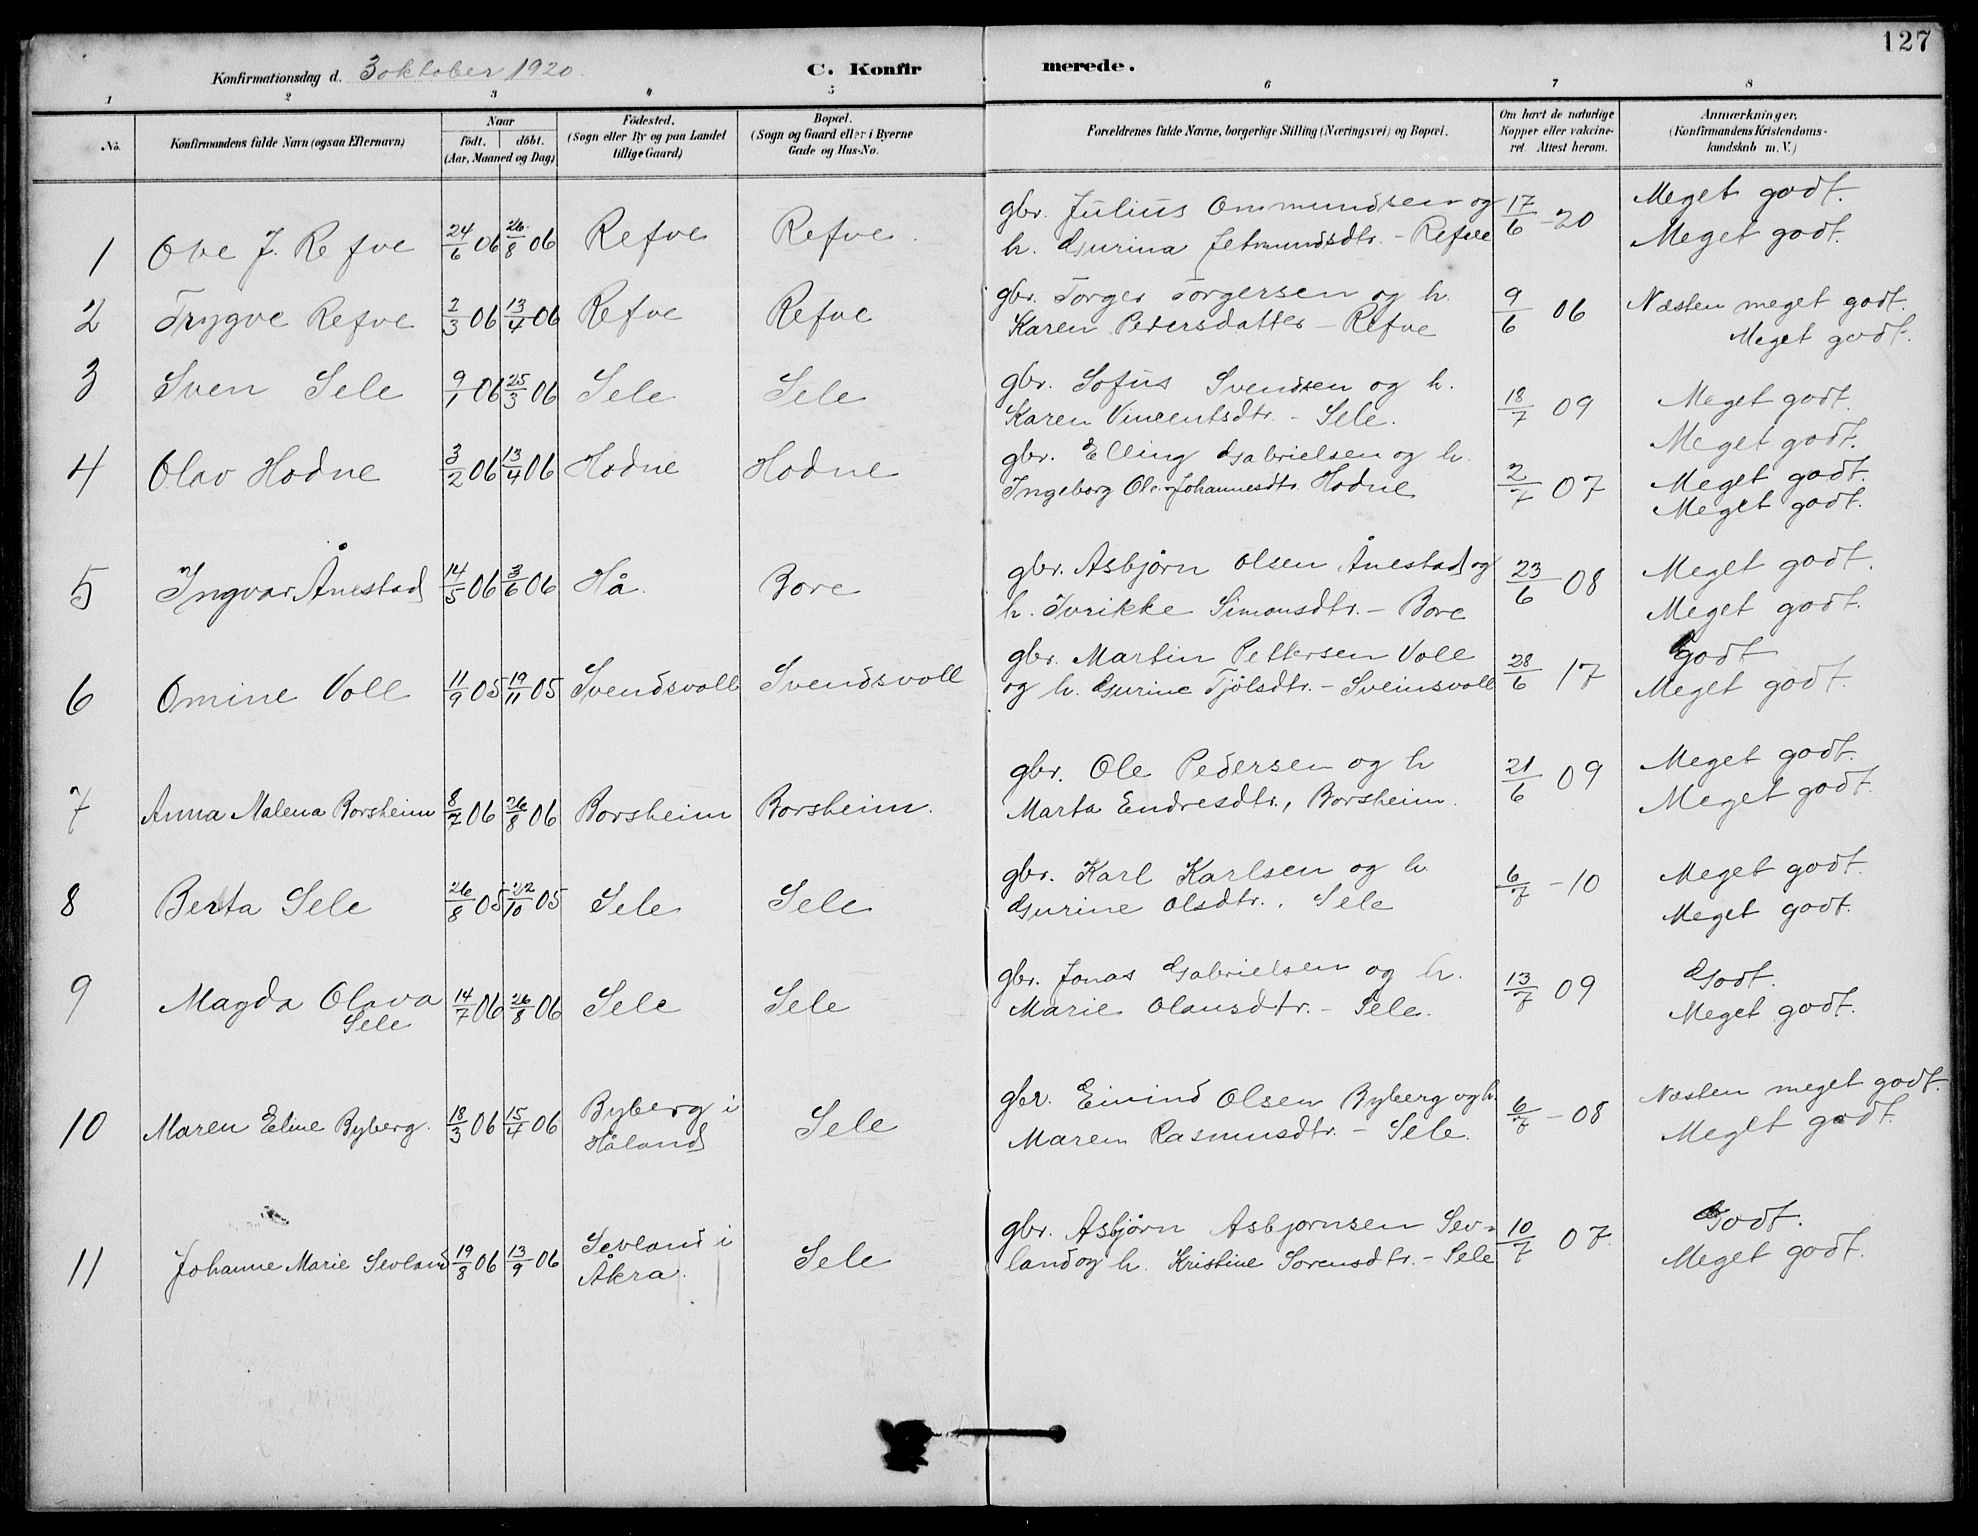 127
Konfirmationsdag d. 3 oktober 1920. C. Konfirmerede.
1 2 3 4 5 6 7 8
No. Konfirmandens fulde Navn (ogsaa Efternavn) Naar födt. döbt. (Aar, Maaned og Dag) Födested. (Sogn eller By og paa Landet tillige Gaard) Bopæl. (Sogn og Gaard eller i Byerne Gade og Hus-No. Forældrenes fulde Navne, borgerlige Stilling (Næringsvei) og Bopæl. Om havt de naturlige Kopper eller vakcineret. Attest herom. Anmærkninger. (Konfirmandens Kristendomskundskab m. V.)
1 Ove J. Refve 24/6 06 26/8 06 Refve Refve. gbr. Julius Ommundsen og 17/6 - 20 Meget godt.
h. Gurina Jetmundsdtr. - Refve Meget godt.
2 Trygve Refve 2/3 06 13/4 06 Refve Refve gbr. Torger Torgersen og h. 9/6 06 Næsten meget godt.
Karen Pedersdatter - Refve Meget godt.
3 Sven Sele 9/1 06 25/3 06 Sele Sele gbr. Sofus Svendsen og h. 18/7 09 Meget godt.
Karen Vincentsdtr. - Sele. Meget godt.
4 Olav Hodne 3/2 06 13/4 06 Hodne Hodne gbr. Elling Gabrielsen og h. 2/7 07 Meget godt.
Ingeborg Johannesdtr. Hodne Meget godt.
5 Ingvar Ånestad 14/5 06 3/6 06 Hå. Bore gbr. Asbjörn Olsen Ånestad og 23/6 08 Meget godt.
h. Ivrikke Simonsdtr. - Bore Meget godt.
6 Omine Voll 11/9 05 19/11 05 Svendsvoll Svendsvoll gbr. Martin Pettersen Voll 28/6 17 godt
og h. Gurine Tjölsdtr. - Sveinsvoll Meget godt.
7 Anna Malena Borsheim 8/7 06 26/8 06 Borsheim Borsheim. gbr. Ole Pedersen og h 21/6 09 Meget godt.
Marta Endresdtr., Borsheim. Meget godt.
8 Berta Sele 26/8 05 22/10 05 Sele Sele gbr. Karl Karlsen og h. 6/7 - 10 Meget godt.
Gurine Olsdtr. Sele Meget godt.
9 Magda Olava Sele 14/7 06 26/8 06 Sele Sele gbr. Jonas Gabrielsen og h. 13/7 09 Godt.
Marie Olausdtr. - Sele. Meget godt.
10 Maren Eline Byberg. 18/3 06 15/4 06 Byberg i Håland Sele gbr. Eivind Olsen Byberg og h. 6/7 - 08 Næsten meget godt.
Maren Rasmusdtr. - Sele. Meget godt.
11 Johanne Marie Sevland 19/8 06 13/9 06 Sevland i Åkra. Sele gbr. Asbjörn Asbjornsen Sev- 10/7 07 Godt.
land og h. Kristine Sorensdtr. - Sele Meget godt.